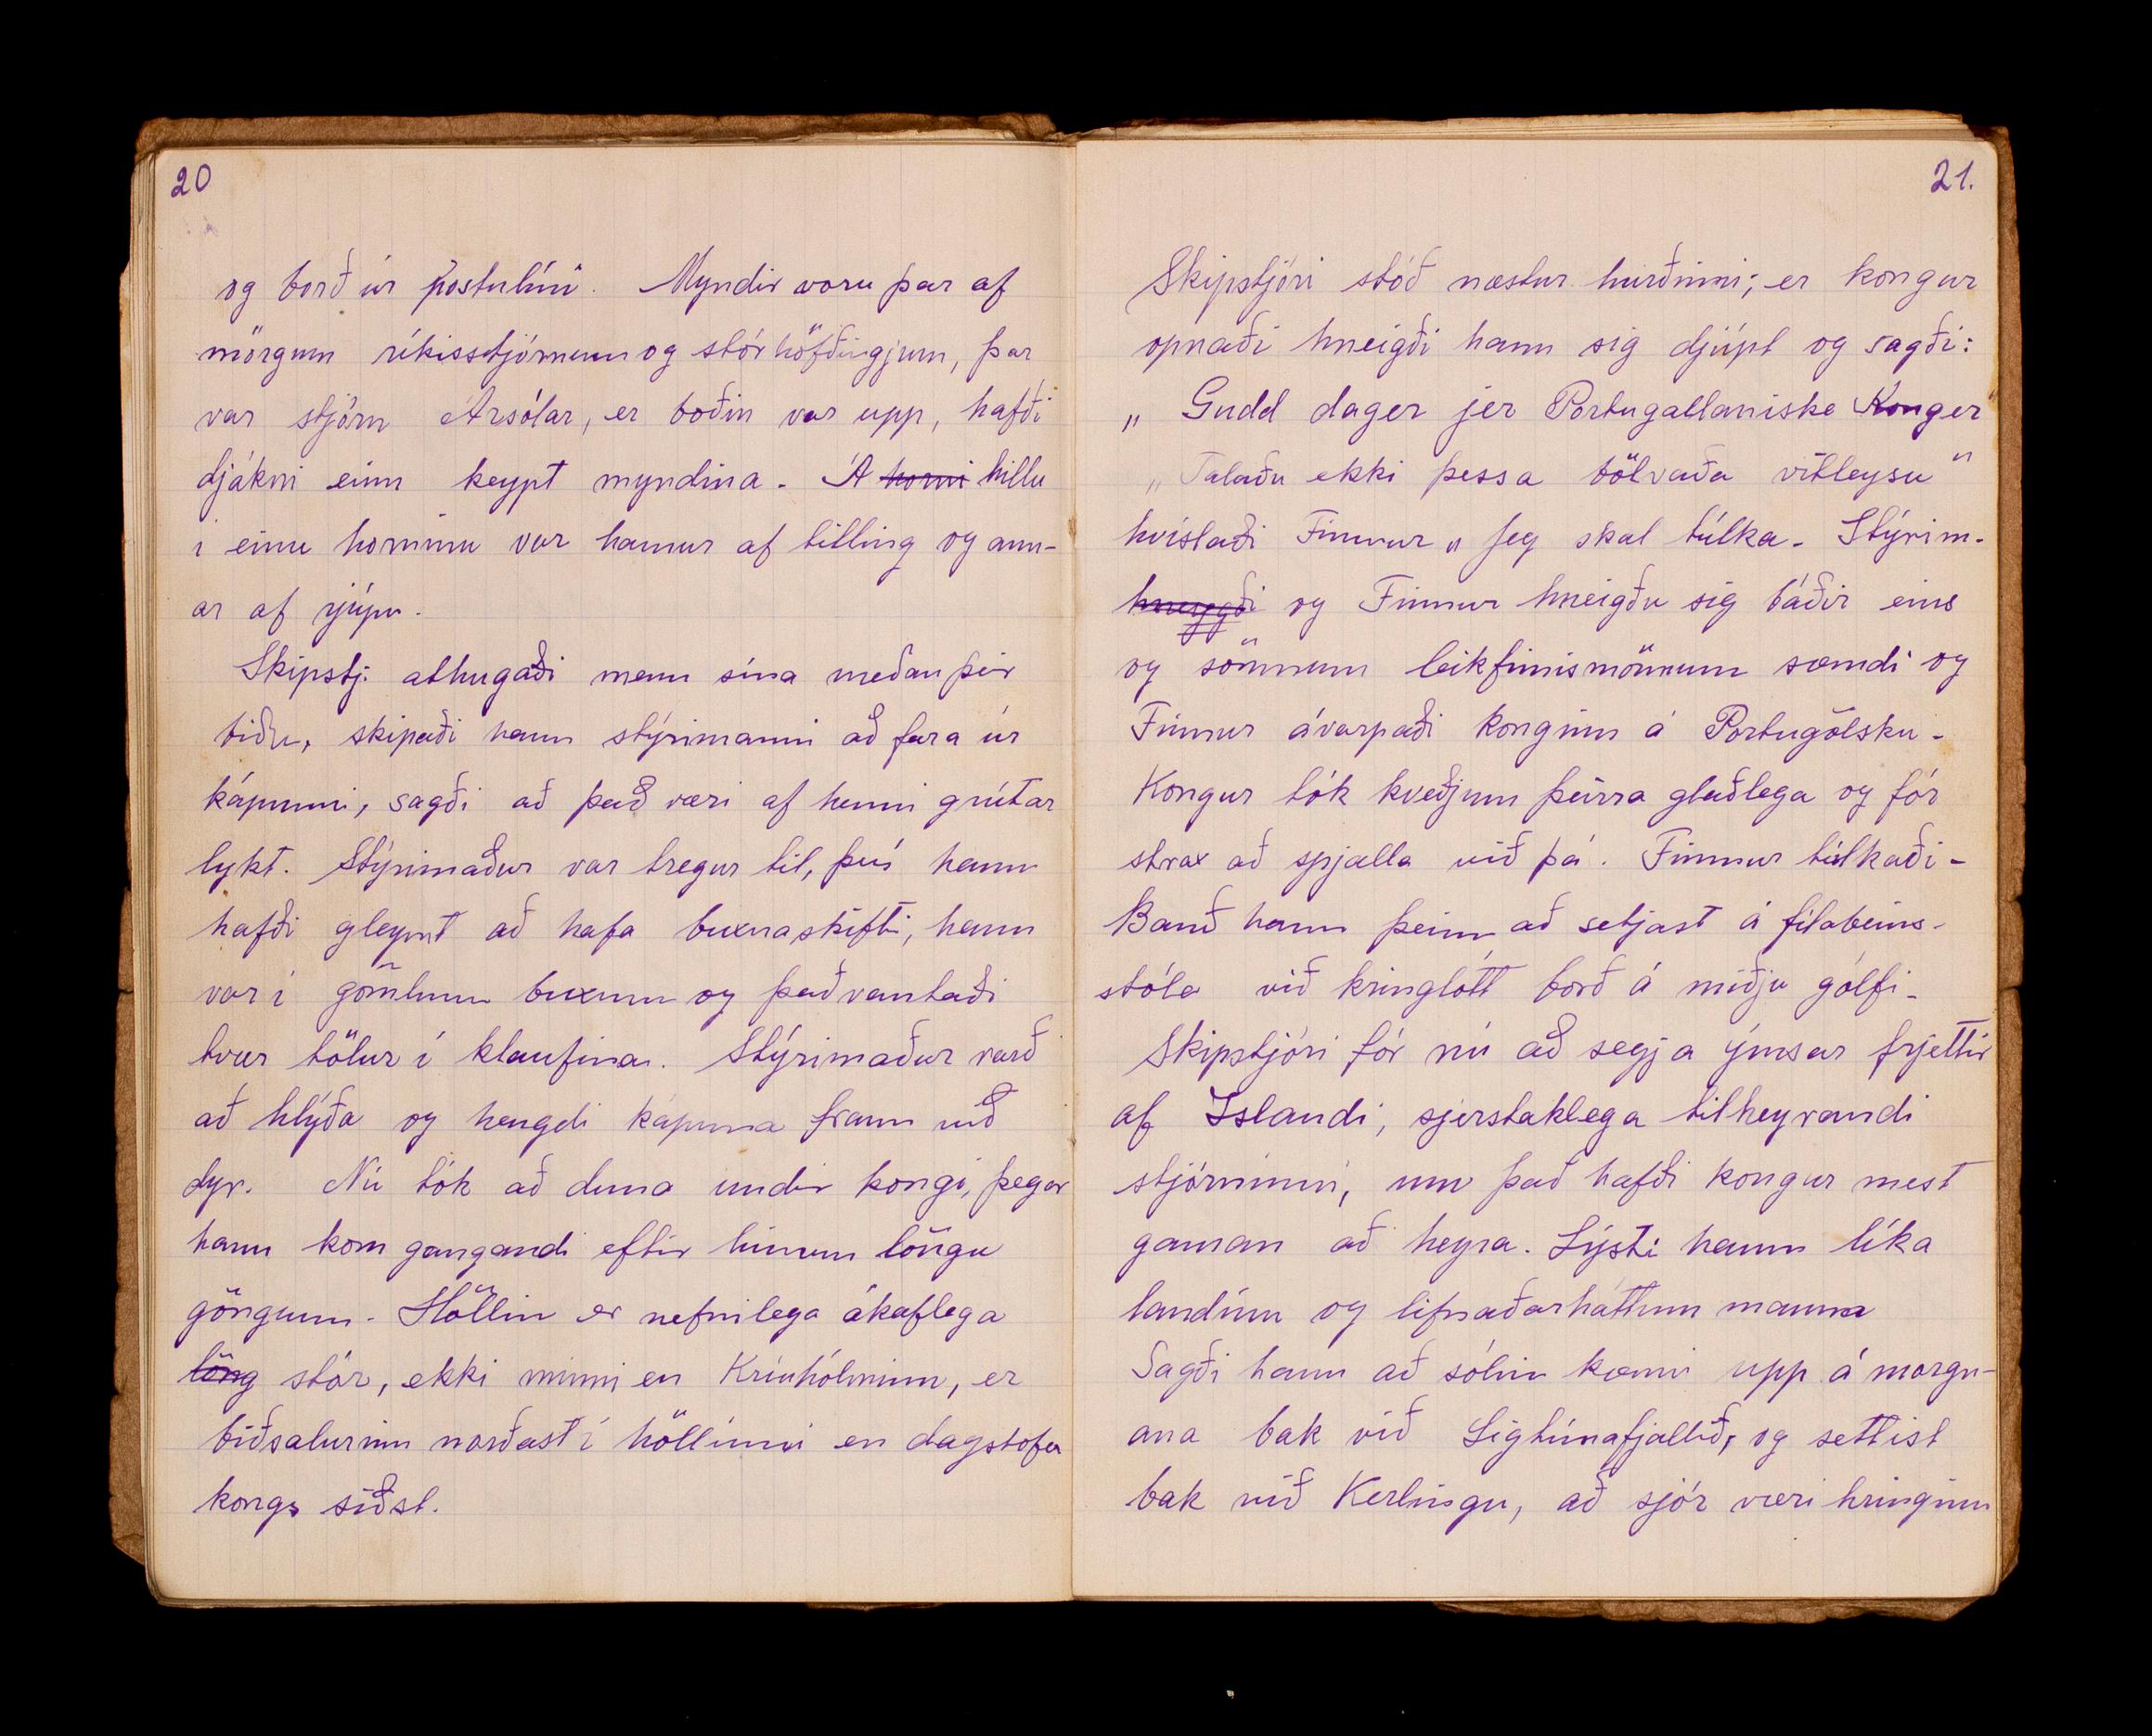 20
og borð úr postulíni. Myndir voru þar af
mörgum ríkisstjórnum og stórhöfðingjum, þar
var stjórn Ársólar, er boðin var upp, hafði
djákni einn keypt myndina. Á horni hillu
í einu horninu var hamur af titling og ann-
ar af rjúpu.
Skipstj: athugaði menn sína meðan þeir
biðu, skipaði hann stýrimanni að fara úr
kápunni, sagði að það væri af henni grútar
lykt. Stýrimaður var tregur til, því hann
hafði gleymt að hafa buxnaskifti, hann
var í gömlum buxum og það vantaði
tvær tölur í klaufina. Stýrimaður varð
að hlýða og hengdi kápuna fram við
dyr. Nú tók að duna undir kongi, þegar
hann kom gangandi eftir hinum löngu
göngum. Höllin er nefnilega ákaflega
löng stór, ekki minni en Kríuhólminn, er
biðsalurinn norðast í höllinni en dagstofa
kongs síðst.
21.
Skipstjóri stóð næstur hurðinni; er kongur
opnaði hneigði hann sig djúpt og sagði:
„Gudd dager jer Portugallaniske Konger"
„Talaðu ekki þessa bölvaða vitleysu"
hvíslaði Finnur „Jeg skal túlka. Stýrim.
hneggði og Finnur hneigðu sig báðir eins
og sönnum leikfimismönnum sæmdi og
Finnur ávarpaði konginn á Portugölsku.
Kongur tók kveðjum þeirra glaðlega og fór
strax að spjalla við þá. Finnur túlkaði.
Bauð hann þeim að setjast á fílabeins-
stóla við kringlótt borð á miðju gólfi.
Skipstjóri fór nú að segja ýmsar frjettir
af Islandi, sjerstaklega tilheyrandi
stjórninni, um það hafði kongur mest
gaman að heyra. Lýsti hann líka
landinu og lifnaðarháttum manna
Sagði hann að sólin kæmi upp á morgn-
ana bak við Sigtúnafjallið, og settist
bak við Kerlingu, að sjór væri hringinn